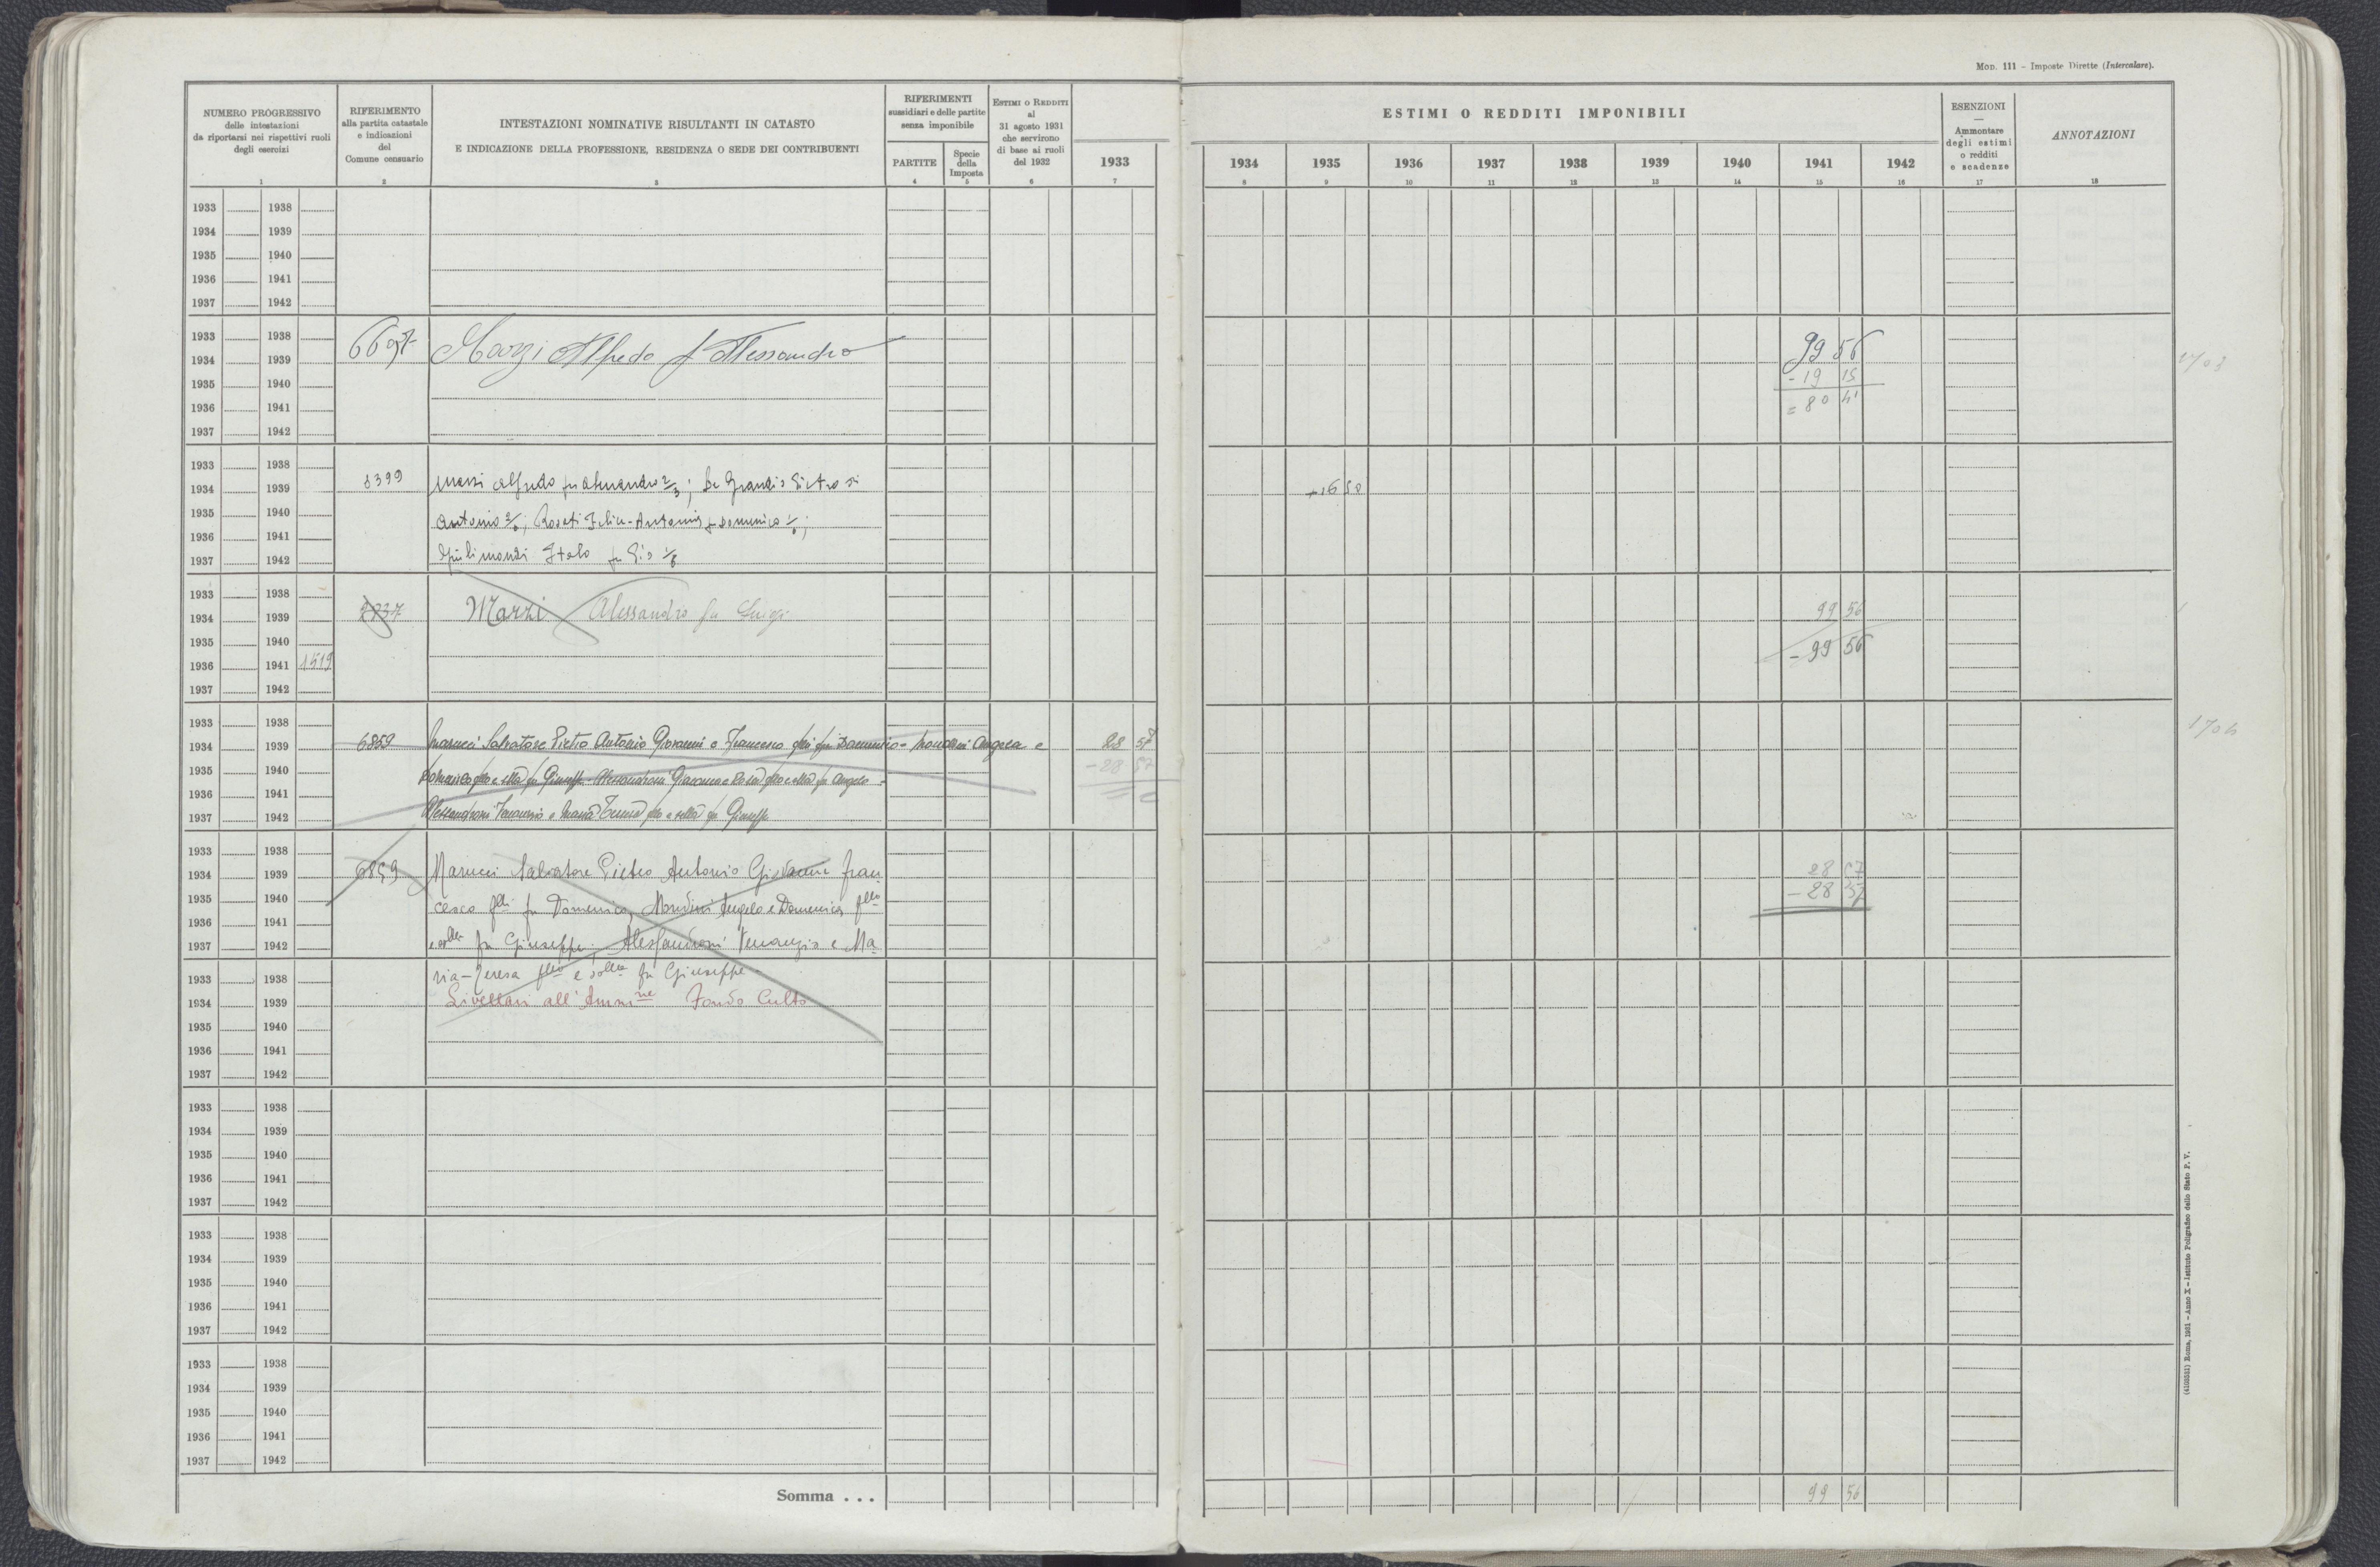 MOD. 111 – Imposte Dirette (Intercalare).
NUMERO PROGRESSIVO
delle intestazioni
da riportarsi nei rispettivi ruoli
degli esercizi
1
RIFERIMENTO
alla partita catastale
e indicazioni
del
Comune censuario
2
INTESTAZIONI NOMINATIVE RISULTANTI IN CATASTO
E INDICAZIONE DELLA PROFESSIONE, RESIDENZA O SEDE DEI CONTRIBUENTI
3
RIFERIMENTI
sussidiari e delle partite
senza imponibile
PARTITE
4
Specie
della
Imposta
5
ESTIMI O REDDITI
al
31 agosto 1931
che servirono
di base ai ruoli
del 1932
6
1933
7
ESTIMI O REDDITI IMPONIBILI
1934 1935 1936 1937 1938 1939 1940 1941 1942
8 9 10 11 12 13 14 15 16
ESENZIONI
—
Ammontare
degli estimi
o redditi
e scadenze
17
ANNOTAZIONI
18
1933 1938
1934 1939
1935 1940
1936 1941
1937 1942
1933 1938
1934 1939 Marzi Alfredo f Alessandro 99 56
1935 1940 - 19 15
1936 1941 = 80 41
1937 1942
1703
1933 1938
1934 1939 8399 Marzi Alfredo fu 2/3; De Grandis Pietro di
1935 1940 Antonio; Rosati Felice-Antonio fu Domenico
1936 1941
1937 1942 Italo fu Pio
1933 1938
1934 1939 Marzi Alessandro fu Luigi 99 56
1935 1940 - 99 56
1936 1941 1519
1937 1942
1933 1938
1934 1939 6859 Marucci Salvatore Pietro Antonio Giovanni e Francesco flli fu Domenico - Mondini Angela e 28 57
1935 1940 Domenico fllo e sella fu Giuseppe - Alessandroni Giacomo e Rosa fllo e sella fu Angelo - - 28 57
1936 1941
1937 1942 Alessandroni Venanzio e Maria Teresa fllo e sella fu Giuseppe
1933 1938
1934 1939 6859 Marucci Salvatore Pietro Antonio Giovanni Fran 28 57
1935 1940 cesco flli fu Domenico, Mondini Angelo e Domenica flllo - 28 57
1936 1941
1937 1942 e sorella fu Giuseppe. Alessandroni Venanzio e Ma
1933 1938 ria-Teresa fllo e sorella fu Giuseppe
1934 1939 Livellari all'Ammne Fondo Culto
1935 1940
1936 1941
1937 1942
1933 1938
1934 1939
1935 1940
1936 1941
1937 1942
1933 1938
1934 1939
1935 1940
1936 1941
1937 1942
1933 1938
1934 1939
1935 1940
1936 1941
1937 1942
Somma . . . 99 56
(4103511) Roma, 1931 – Anno X – Istituto Poligrafico dello Stato P. V.